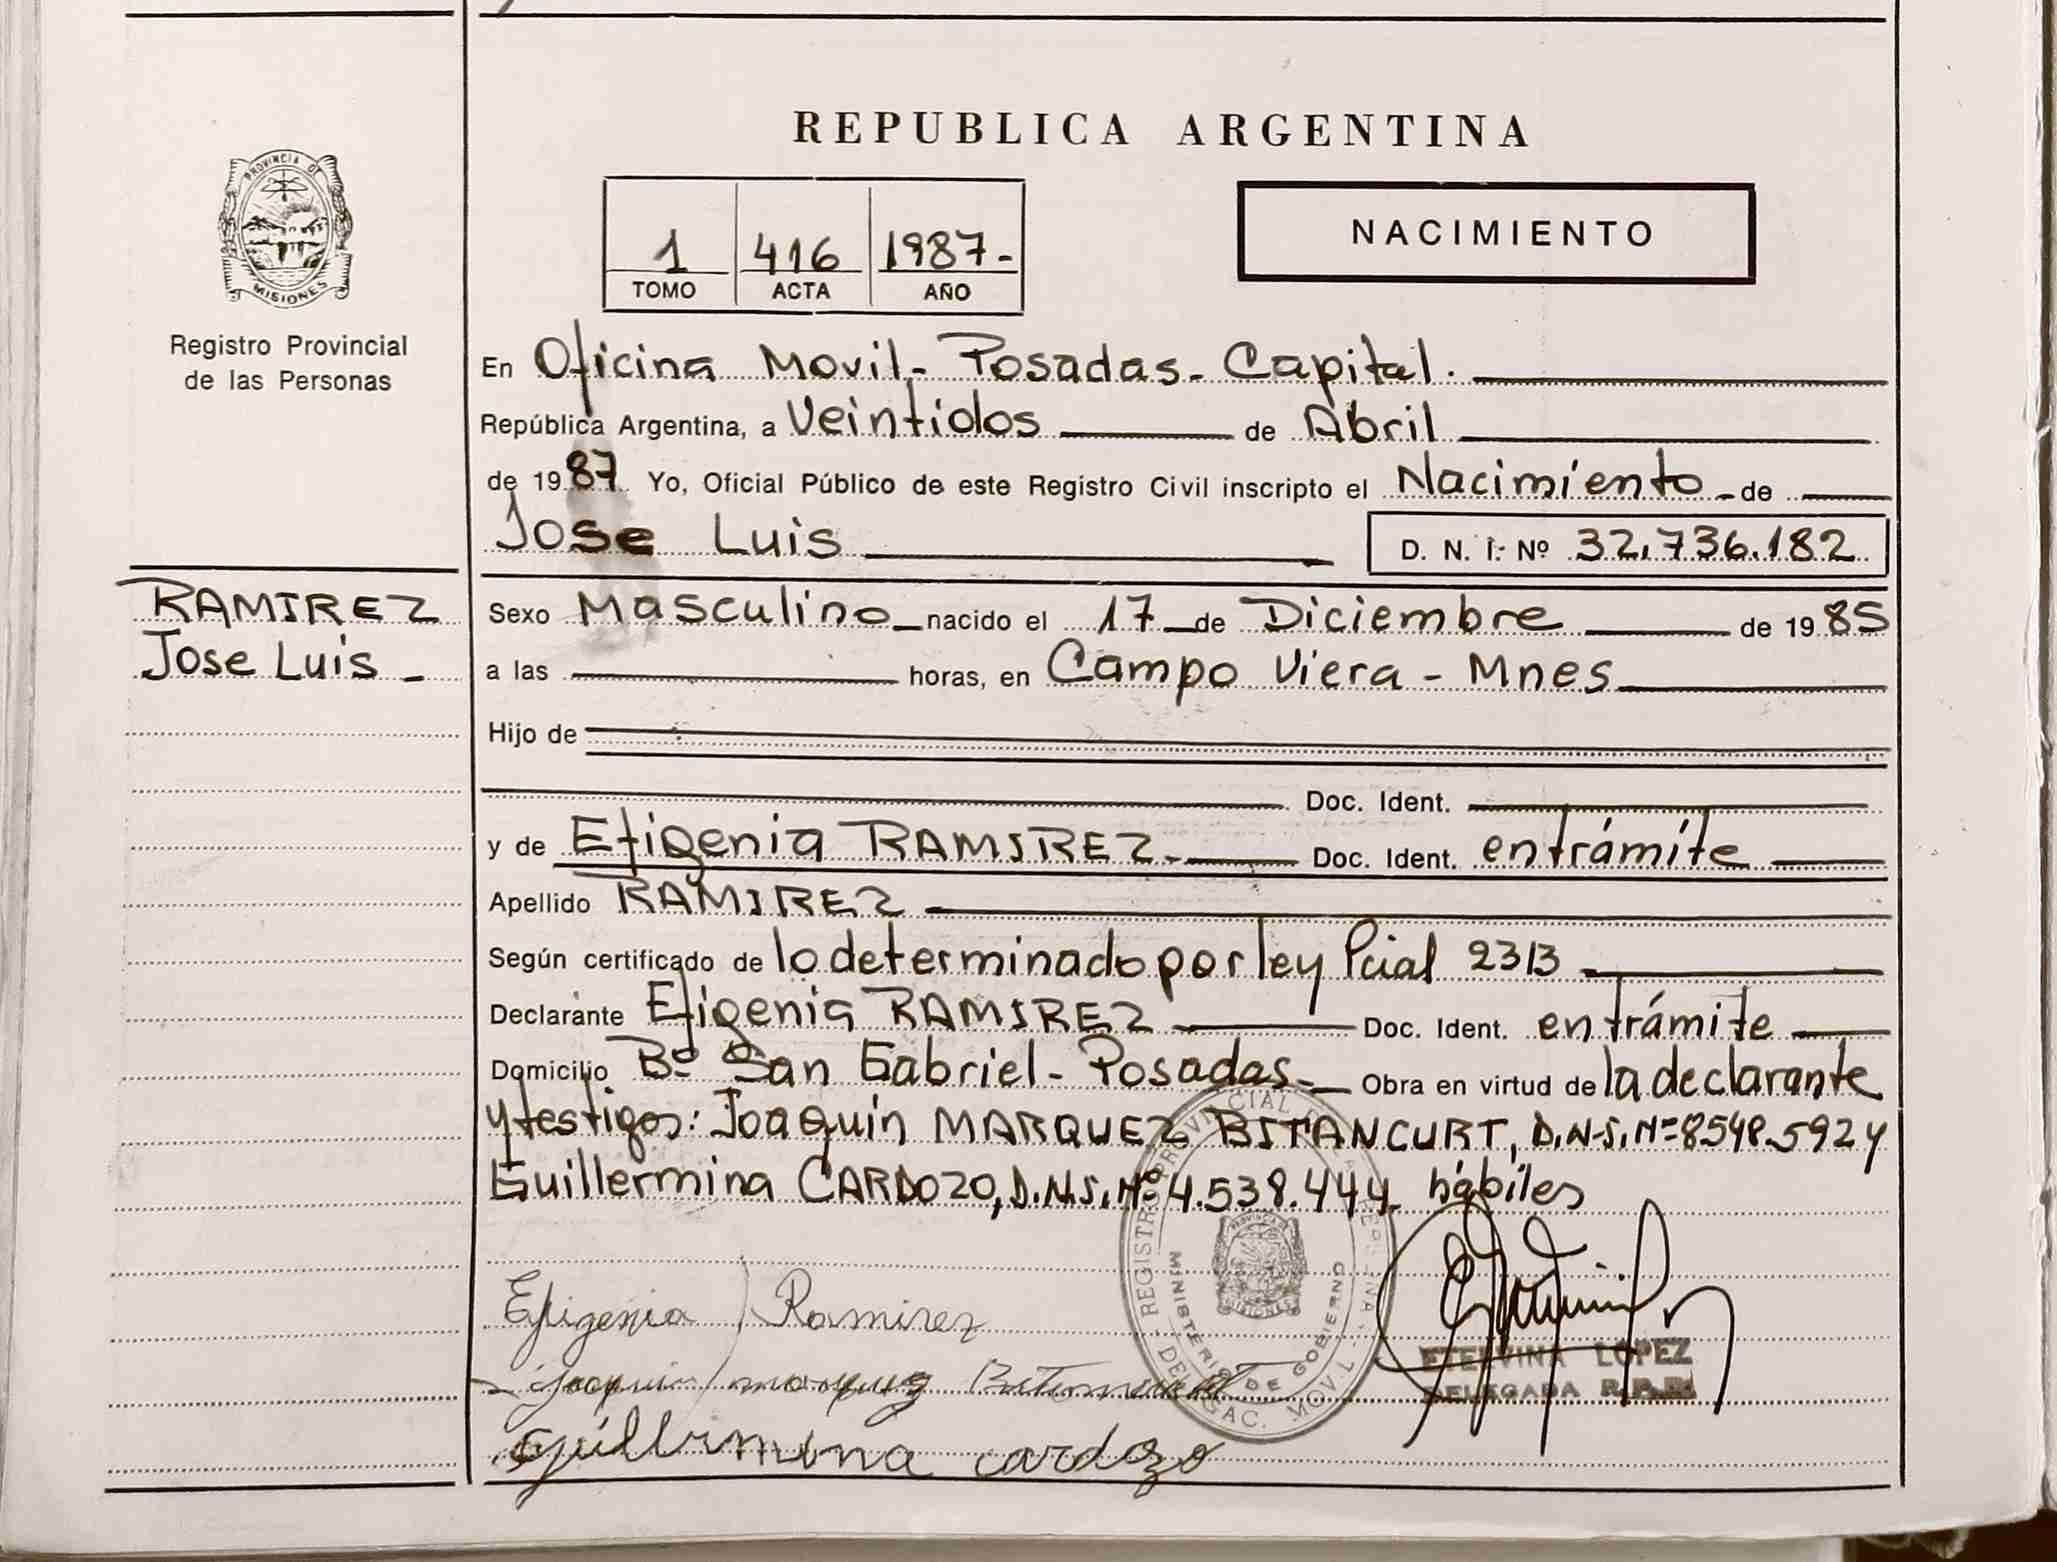 REPUBLICA ARGENTINA
PROVINCIA DE
MISIONES
Registro Provincial
de las Personas
1 416 1987-
TOMO ACTA AÑO
NACIMIENTO
En Oficina Movil- Posadas- Capital.
República Argentina, a Veintidos de Abril
de 1987 Yo, Oficial Público de este Registro Civil inscripto el Nacimiento - de
Jose Luis D. N. I. Nº 32.736.182
RAMIREZ
Jose Luis -
Sexo Masculino nacido el 17 de Diciembre de 1985
a las horas, en Campo Viera - Mnes
Hijo de
Doc. Ident.
y de Efigenia RAMIREZ- Doc. Ident. en trámite
Apellido RAMIREZ
Según certificado de lo determinado por ley Pcial 2313
Declarante Efigenia RAMIREZ Doc. Ident. en trámite
Domicilio Bº San Gabriel- Posadas- Obra en virtud de la declarante
y testigos: Joaquin MARQUEZ BITANCURT, D.N.I. Nº 8548.592 y
Guillermina CARDOZO, D.N.I. Nº 4.538.444 hábiles
Efigenia Ramirez
Joaquin marquez
Guillermina cardozo
REGISTRO PROVINCIAL DE LAS PERSONAS
MINISTERIO DE GOBIERNO
DELEGAC. MOVIL
ETELVINA LOPEZ
DELEGADA R.P.P.